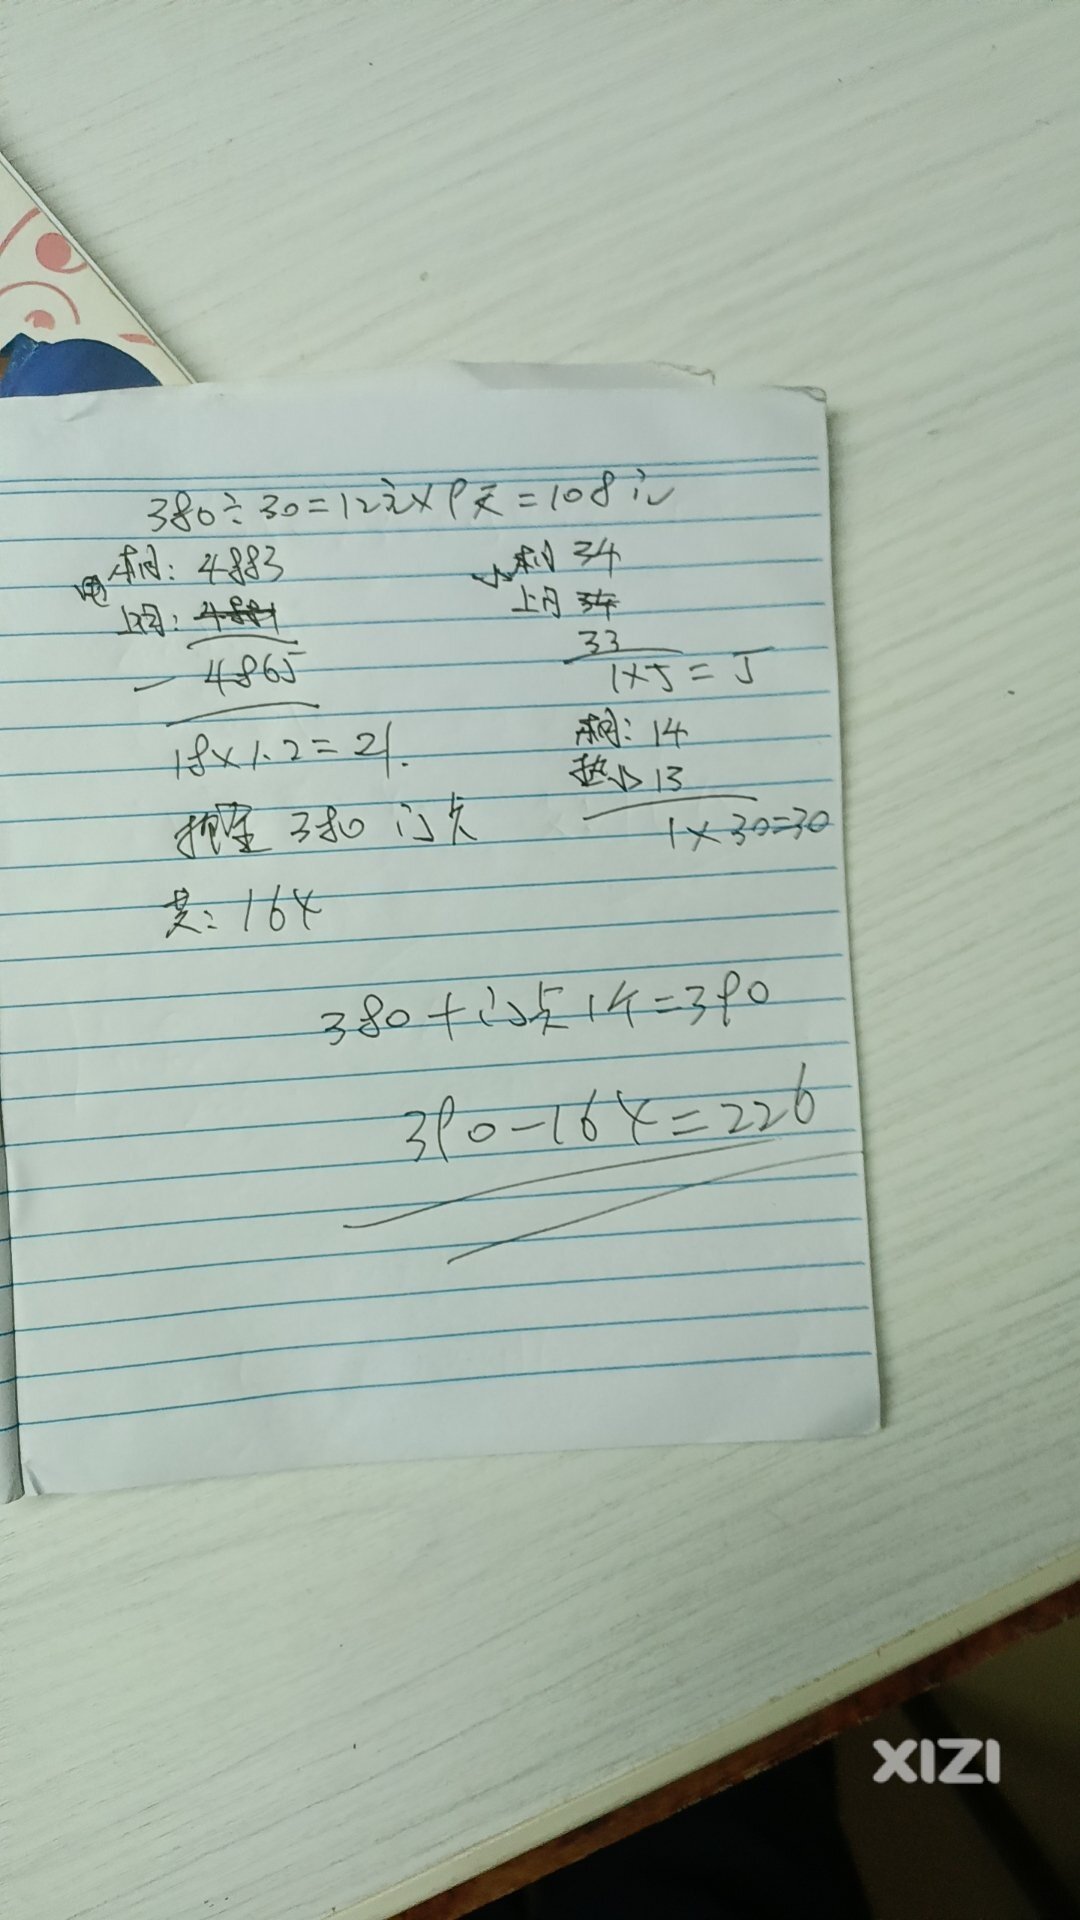 380÷30=12元×9天=108元
电 本月: 4883
上月: 4881
- 4865
18×1.2=21.
押金 380 门卡
共: 164
水 本月 34
上月 34
33
1×5=5
本月: 14
热水 13
1×30=30
380+门卡1个=390
390-164=226
XIZI